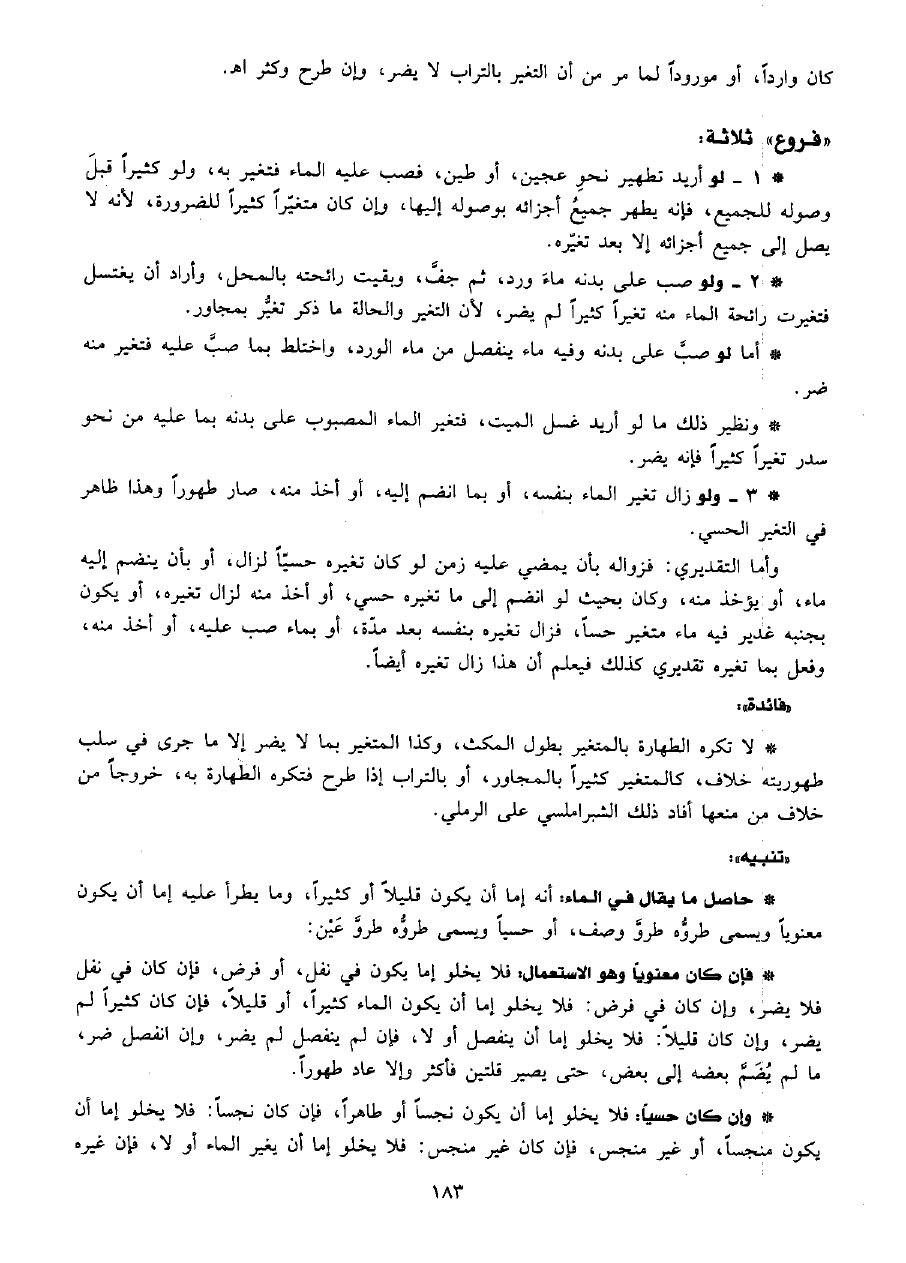 كان وارداً، أو موروداً لما مر من أن التغير بالتراب لا يضر، وإن طرح وكثر اهـ.
«فروع» ثلاثة:
* ١ ـ لو أريد تطهير نحوِ عجين، أو طين، فصب عليه الماء فتغير به، ولو كثيراً قبلَ
وصوله للجميع، فإنه يطهر جميعُ أجزائه بوصوله إليها، وإن كان متغيّراً كثيراً للضرورة، لأنه لا
يصل إلى جميع أجزائه إلا بعد تغيّره.
* ٢ ـ ولو صب على بدنه ماءَ ورد، ثم جفَّ، وبقيت رائحته بالمحل، وأراد أن يغتسل
فتغيرت رائحة الماء منه تغيراً كثيراً لم يضر، لأن التغير والحالة ما ذكر تغيُّر بمجاور.
* أما لو صبَّ على بدنه وفيه ماء ينفصل من ماء الورد، واختلط بما صبَّ عليه فتغير منه
ضر.
* ونظير ذلك ما لو أريد غسل الميت، فتغير الماء المصبوب على بدنه بما عليه من نحو
سدر تغيراً كثيراً فإنه يضر.
* ٣ ـ ولو زال تغير الماء بنفسه، أو بما انضم إليه، أو أخذ منه، صار طهوراً وهذا ظاهر
في التغير الحسي.
وأما التقديري: فزواله بأن يمضي عليه زمن لو كان تغيره حسيّاً لزال، أو بأن ينضم إليه
ماء، أو يؤخذ منه، وكان بحيث لو انضم إلى ما تغيره حسي، أو أخذ منه لزال تغيره، أو يكون
بجنبه غدير فيه ماء متغير حساً، فزال تغيره بنفسه بعد مدّة، أو بماء صب عليه، أو أخذ منه،
وفعل بما تغيره تقديري كذلك فيعلم أن هذا زال تغيره أيضاً.
«فائدة»:
* لا تكره الطهارة بالمتغير بطول المكث، وكذا المتغير بما لا يضر إلا ما جرى في سلب
طهوريته خلاف، كالمتغير كثيراً بالمجاور، أو بالتراب إذا طرح فتكره الطهارة به، خروجاً من
خلاف من منعها أفاد ذلك الشبراملسي على الرملي.
«تنبيه»:
* حاصل ما يقال في الماء: أنه إما أن يكون قليلاً أو كثيراً، وما يطرأ عليه إما أن يكون
معنوياً ويسمى طروُّه طروَّ وصف، أو حسياً ويسمى طروُّه طروَّ عَيْن:
* فإن كان معنوياً وهو الاستعمال: فلا يخلو إما يكون في نفل، أو فرض، فإن كان في نفل
فلا يضر، وإن كان في فرض: فلا يخلو إما أن يكون الماء كثيراً، أو قليلاً، فإن كان كثيراً لم
يضر، وإن كان قليلاً: فلا يخلو إما أن ينفصل أو لا، فإن لم ينفصل لم يضر، وإن انفصل ضر،
ما لم يُضَمَّ بعضه إلى بعض، حتى يصير قلتين فأكثر وإلا عاد طهوراً.
* وإن كان حسياً: فلا يخلو إما أن يكون نجساً أو طاهراً، فإن كان نجساً: فلا يخلو إما أن
يكون منجساً، أو غير منجس، فإن كان غير منجس: فلا يخلو إما أن يغير الماء أو لا، فإن غيره
١٨٣